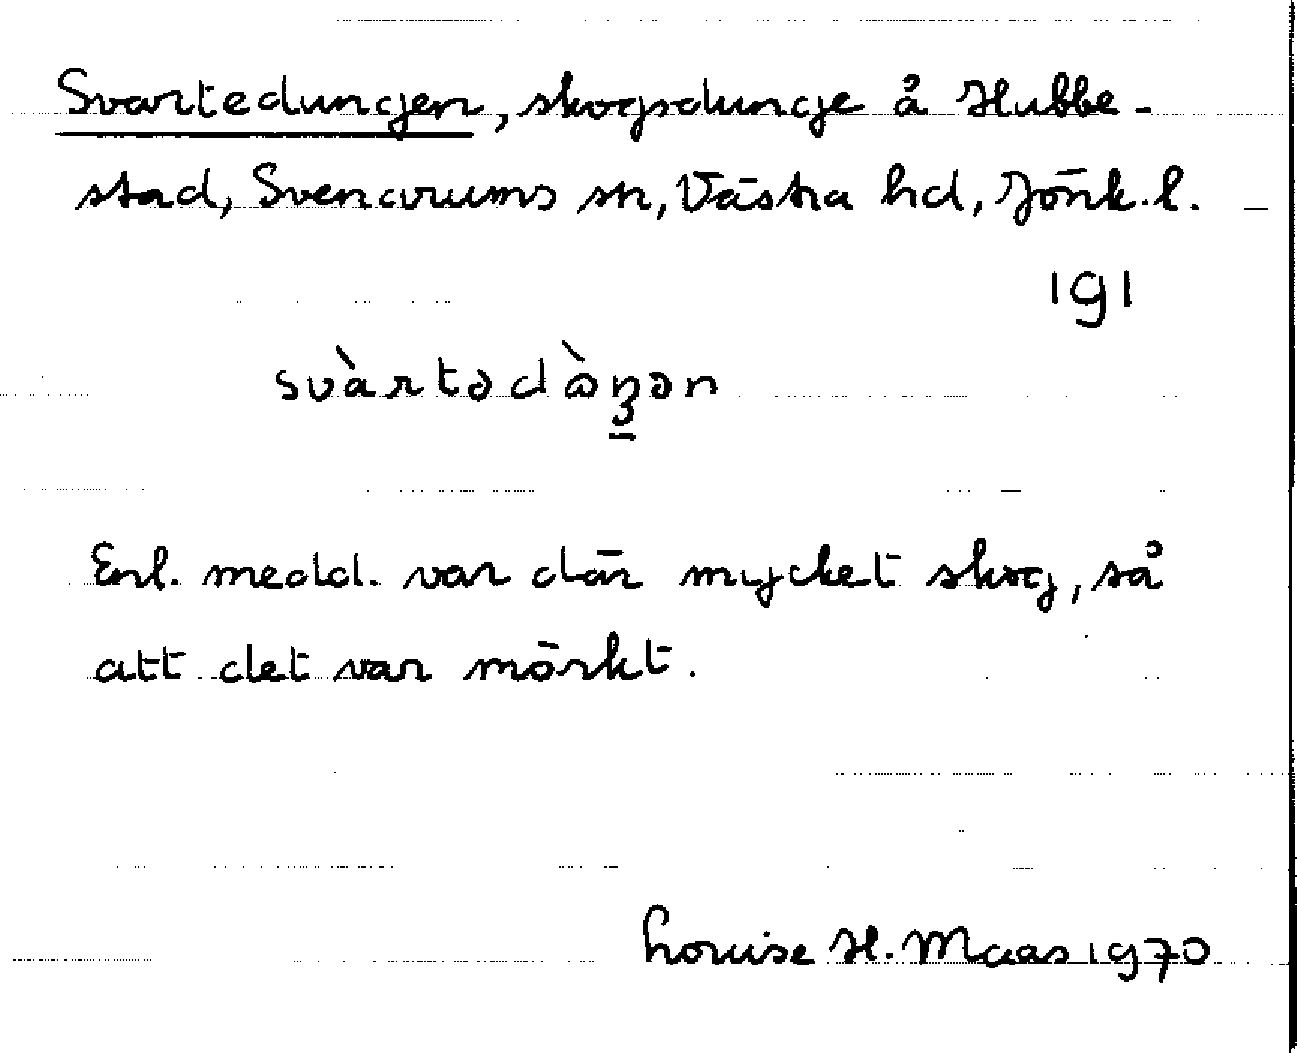 Svartedungen, skogsdunge å Hubbe-
stad, Svenarums sn, Västra hd, Jönk.l.
191
svàrtədὼᶇən
Enl. medd. var där mycket skog, så
att det var mörkt.
Louise H. Maas 1970